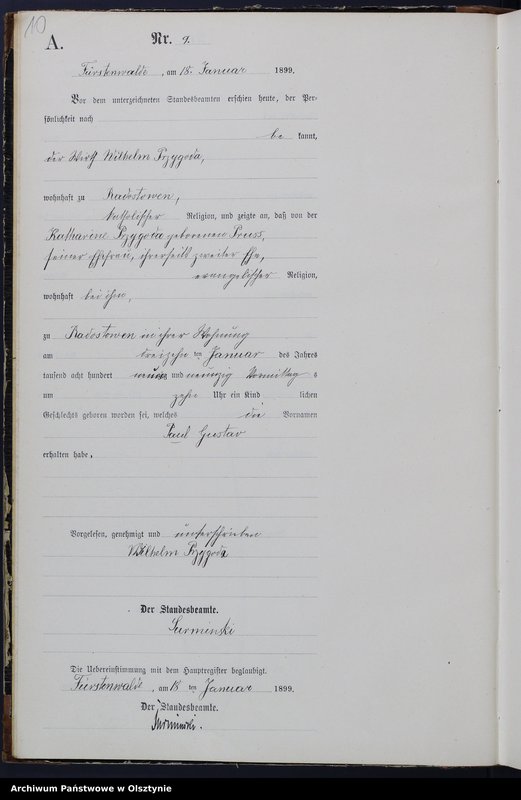 10
A.
Nr. 9.
Fürstenwalde, am 18. Januar 1899.
Vor dem unterzeichneten Standesbeamten erschien heute, der Per-
sönlichkeit nach
be kannt,
der Wirth Wilhelm Przygoda,
wohnhaft zu Radostowen,
katholischer Religion, und zeigte an, daß von der
Katharine Przygoda geborenen Preuss,
seiner Ehefrau, ihrerseits zweiter Ehe,
evangelischer Religion,
wohnhaft bei ihm,
zu Radostowen in ihrer Wohnung
am dreizehn ten Januar des Jahres
tausend acht hundert neun und neunzig Vormittag s
um zehn Uhr ein Kind lichen
Geschlechts geboren worden sei, welches die Vornamen
Paul Gustav
erhalten habe.
Vorgelesen, genehmigt und unterschrieben
Wilhelm Przygoda
Der Standesbeamte.
Surminski
Die Uebereinstimmung mit dem Hauptregister beglaubigt.
Fürstenwalde, am 18 ten Januar 1899.
Der Standesbeamte.
Surminski.
Archiwum Państwowe w Olsztynie